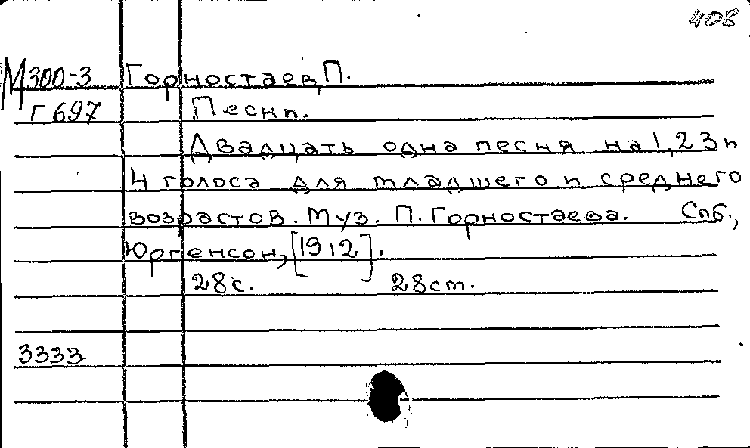 408
М300-3 Горностаев, П.
Г697 Песни.
Двадцать одна песня на 1, 2 3 и
4 голоса для младшего и среднего
возрастов. Муз. П. Горностаева. Спб.,
Юргенсон, [1912].
28с. 28см.
3333